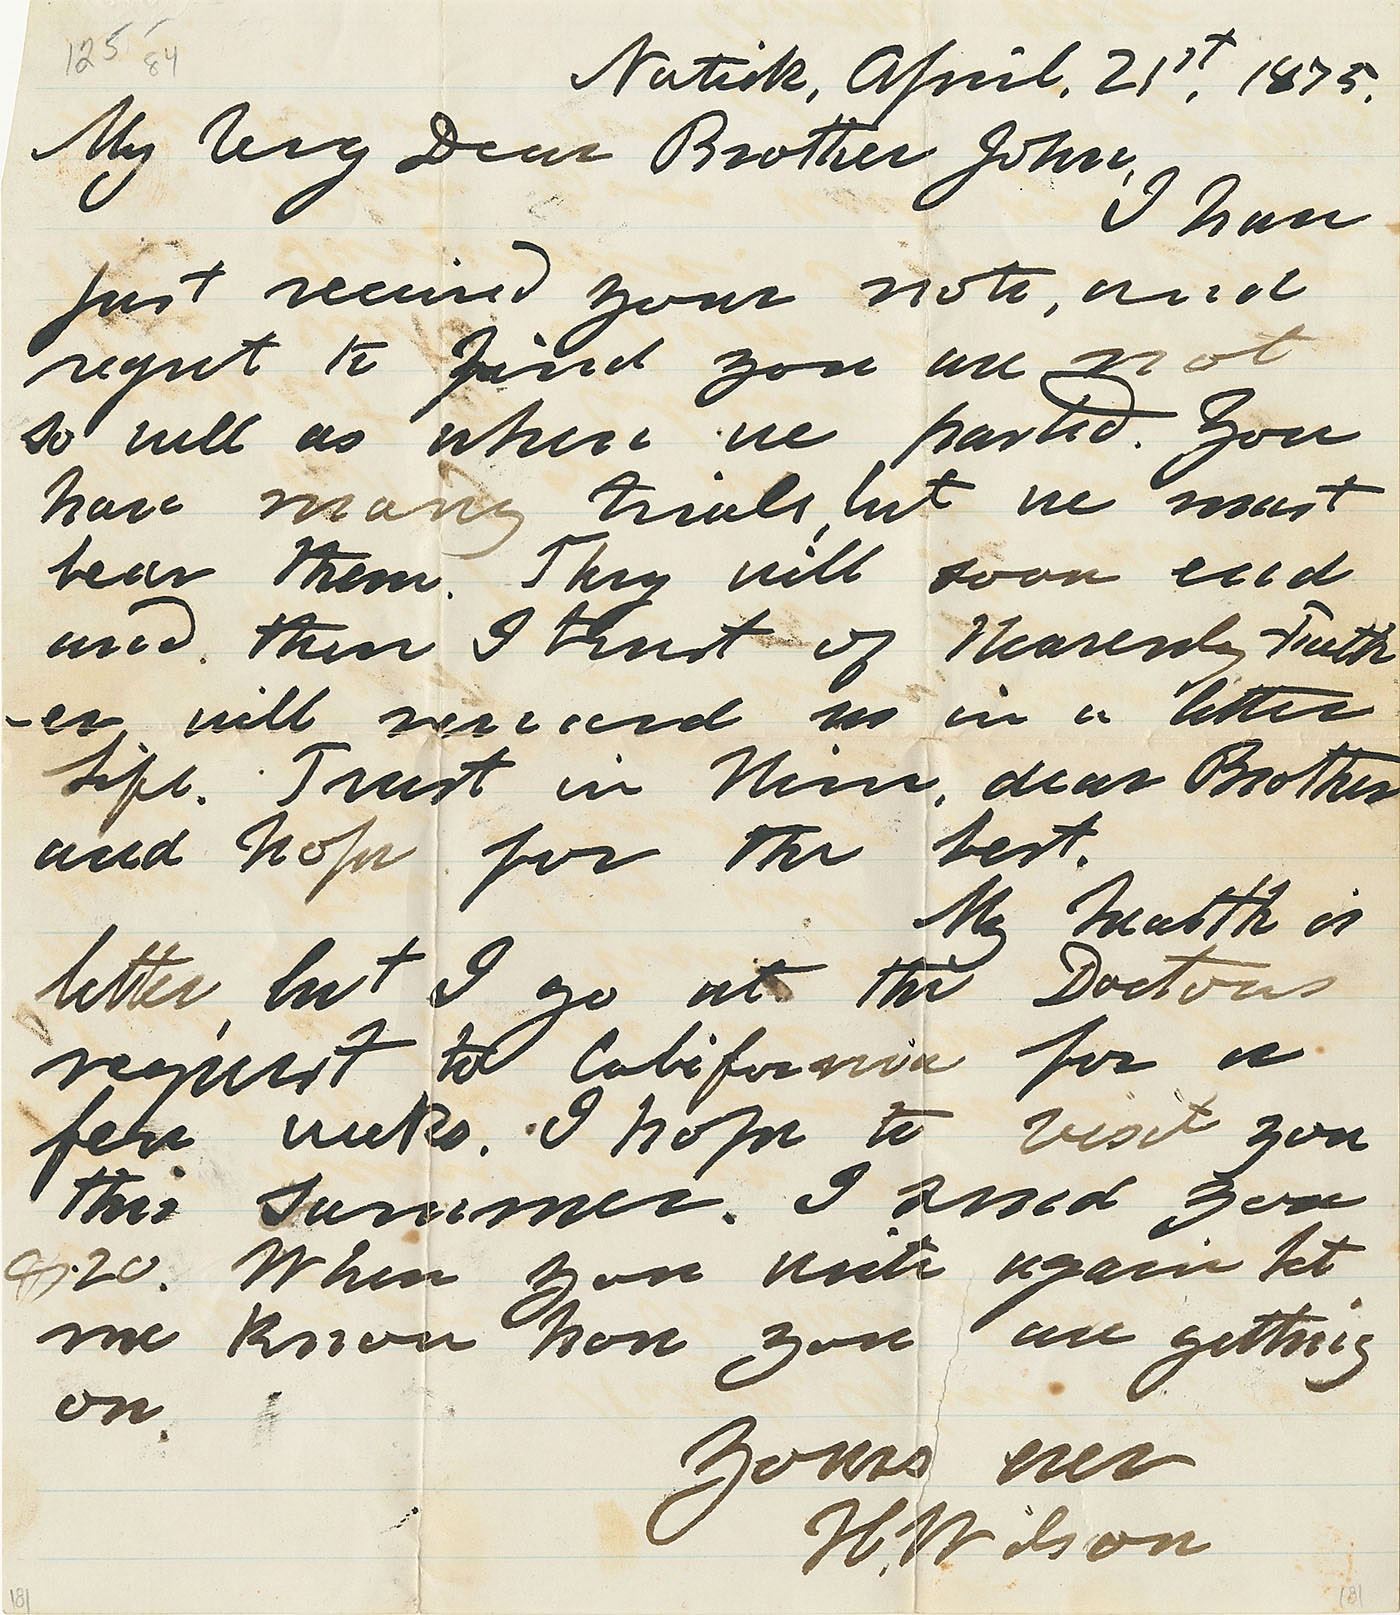 125/84
Natick, April, 21st, 1875.
My Very Dear Brother John,
I have
just received your note, and
regret to find you are not
so well as when we parted. You
have many trials, but we must
bear them. They will soon end
and then I trust of Heavenly Fath
-er will reward us in a better
life. Trust in Him, dear Brother
and hope for the best.
My health is
better, but I go at the Doctors
request to California for a
few weeks. I hope to visit you
this summer. I send you
20. When you write again let
me know how you are getting
on.
Yours ever
H. Wilson
181
181